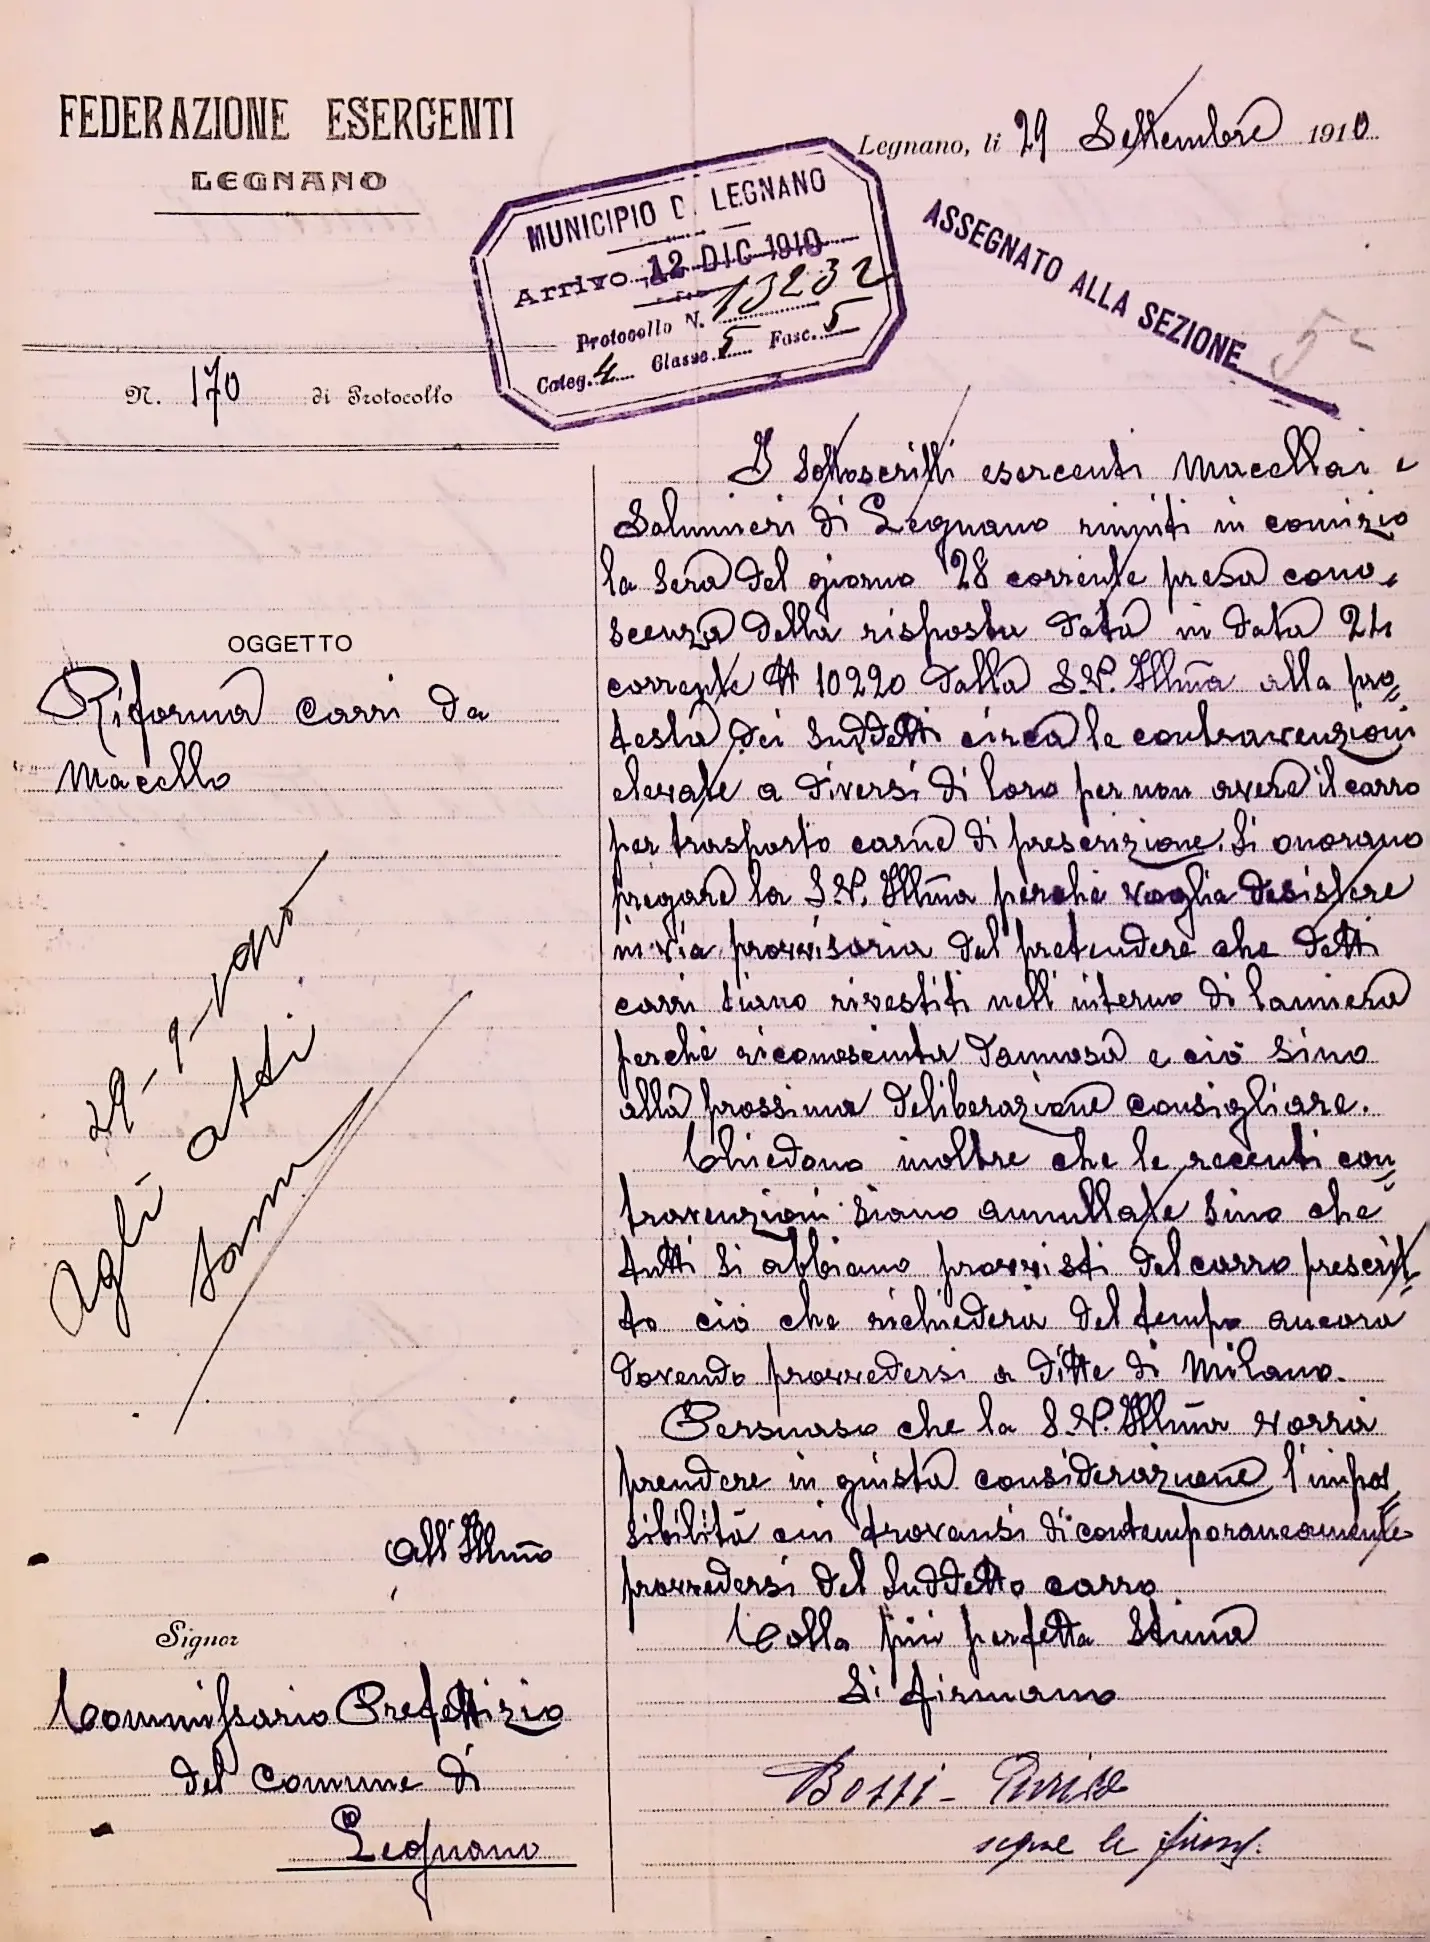 FEDERAZIONE ESERCENTI
LEGNANO
Legnano, li 29 Settembre 1910
MUNICIPIO DI LEGNANO
Arrivo 12 DIC 1910
Protocollo N. 13232
Categ. 4 Classe 5 Fasc. 5
ASSEGNATO ALLA SEZIONE 5
N. 170 di Protocollo
OGGETTO
Riforma Carri da
Macello
29-9-1910
Agli atti
All'Illmo
Signor
Commissario Prefettizio
del Comune di
Legnano
I Sottoscritti esercenti Macellai e
Salumieri di Legnano riuniti in comizio
la sera del giorno 28 corrente presa cono-
scenza della risposta data in data 24
corrente N 10220 dalla S.V. Illma alla pro=
testa dei suddetti circa le contravenzioni
elevate a diversi di loro per non avere il carro
per trasporto carne di prescrizione. Si onorano
pregare la S.V. Illma perchè voglia desistere
in via provvisoria dal pretendere che detti
carri siano rivestiti nell'interno di lamiera
perchè riconosciuta dannosa e ciò sino
alla prossima deliberazione consigliare.
Chiedono inoltre che le recenti con=
travenzioni siano annullate sino che
tutti si abbiano provvisti del carro prescrit-
to ciò che richiederà del tempo ancora
dovendo provvedersi a ditte di Milano.
Persuaso che la S.V. Illma vorrà
prendere in giusta considerazione l'impos=
sibilità cui trovansi di contemporaneamente
provvedersi del suddetto carro
Colla più perfetta Stima
Si firmano
Bossi-
segue le firme.